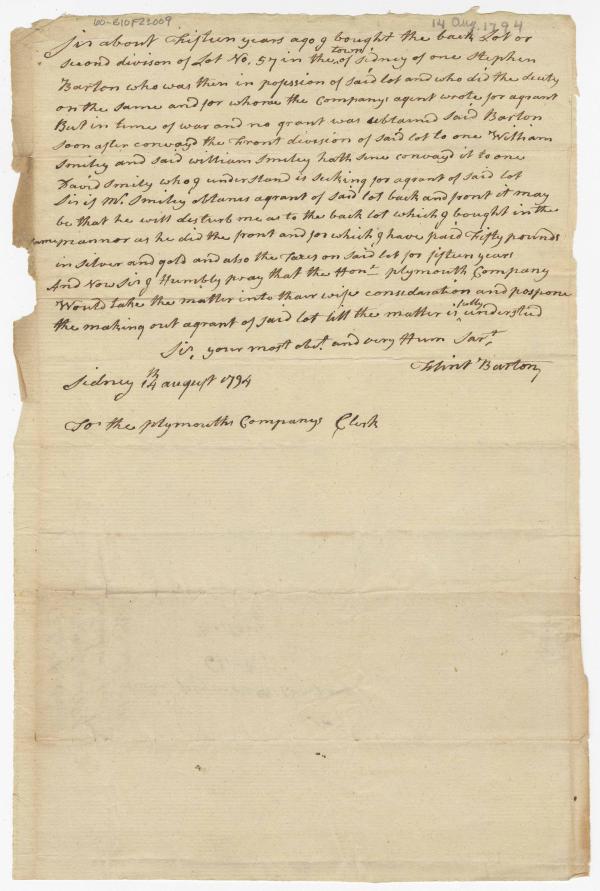 60-B10F22009
14 Aug. 1794
Sir about Fifteen years ago I bought the back Lot or
second divison of Lot No. 57 in the town of Sidney of one Stephen
Barton who was then in posession of said lot and who did the deuty
on the same and for whome the Companys agent wrote for agrant
But in time of war and no grant was obtained said Barton
soon after convayd the Front division of said lot to one William
Smiley and said william Smiley hath sine convayd it to one
David Smily who I understand is seeking for agrant of said lot
Sir if Mr. Smiley obtanes agrant of said lot back and front it may
be that he will disturb me as to the back lot which I bought in the
same mannor as he did the front and for which I have paid Fifty pounds
in silver and gold and also the Taxes on said lot for fifteen years
And Now Sir I Humbly pray that the Honl. plymouth Company
Would take the matter into thair wise consideration and pospone
the making out agrant of said lot till the matter is fully understud
Sir, your most obt. and very Hum Sart.
Flint Barton
Sidney 14th august 1794
To the plymouths Companys Clerk